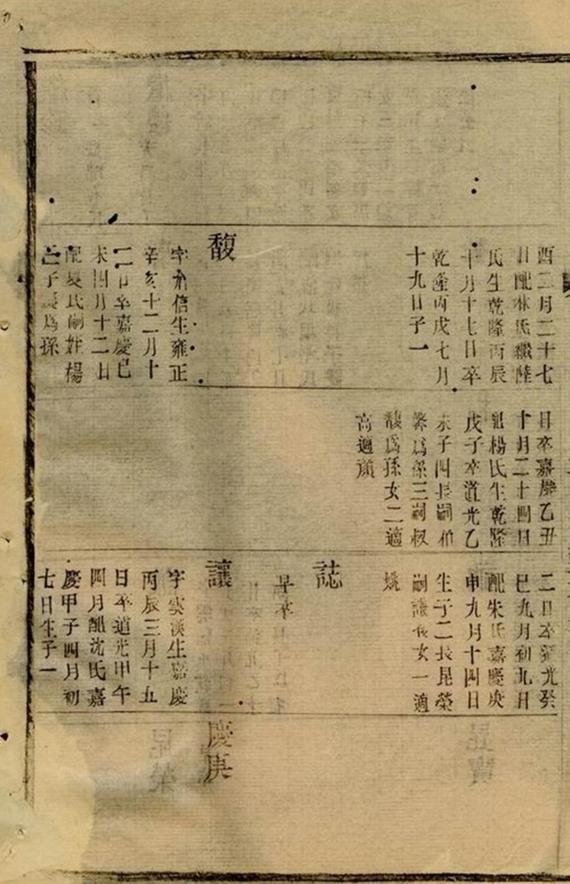 酉二月二十七
日配林氏繼陸
氏生乾隆丙辰
十月十七日卒
乾隆丙戌七月
十九日子一
馥
字信生雍正
辛亥十二月十
二日卒嘉慶己
未四月十二日
配夏氏嗣姪楊
之子為孫
日卒嘉慶乙丑
十月二十四日
配楊氏生乾隆
戊子卒道光乙
未子四長嗣柏
馨為孫三嗣叔
馥為孫女二適
高適顏
二日卒道光癸
巳九月初九日
配朱氏嘉慶庚
申九月十四日
生子二長昆榮
嗣讓女一適
姚
誌
早卒
讓
字雲漢生嘉慶
丙辰三月十五
日卒道光甲午
四月配沈氏嘉
慶甲子四月初
七日生子一
慶庚